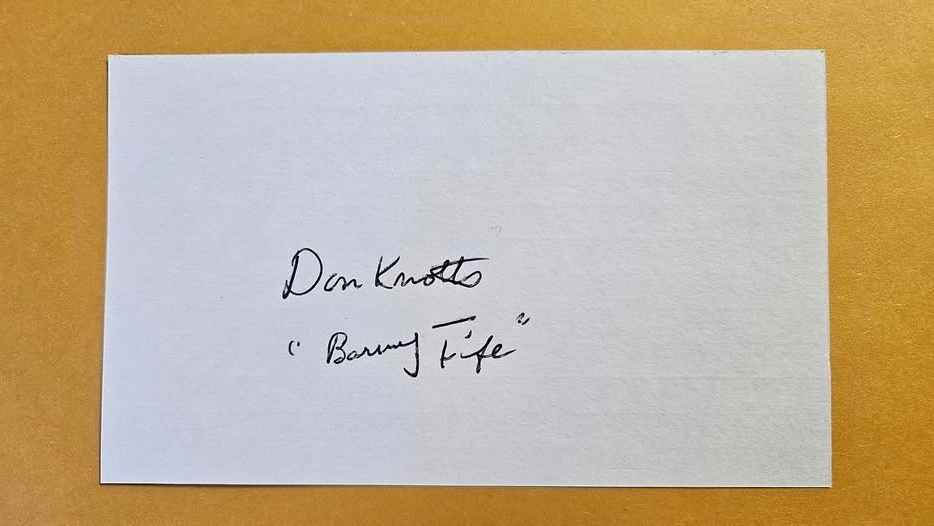 Don Knotts
"Barney Fife"